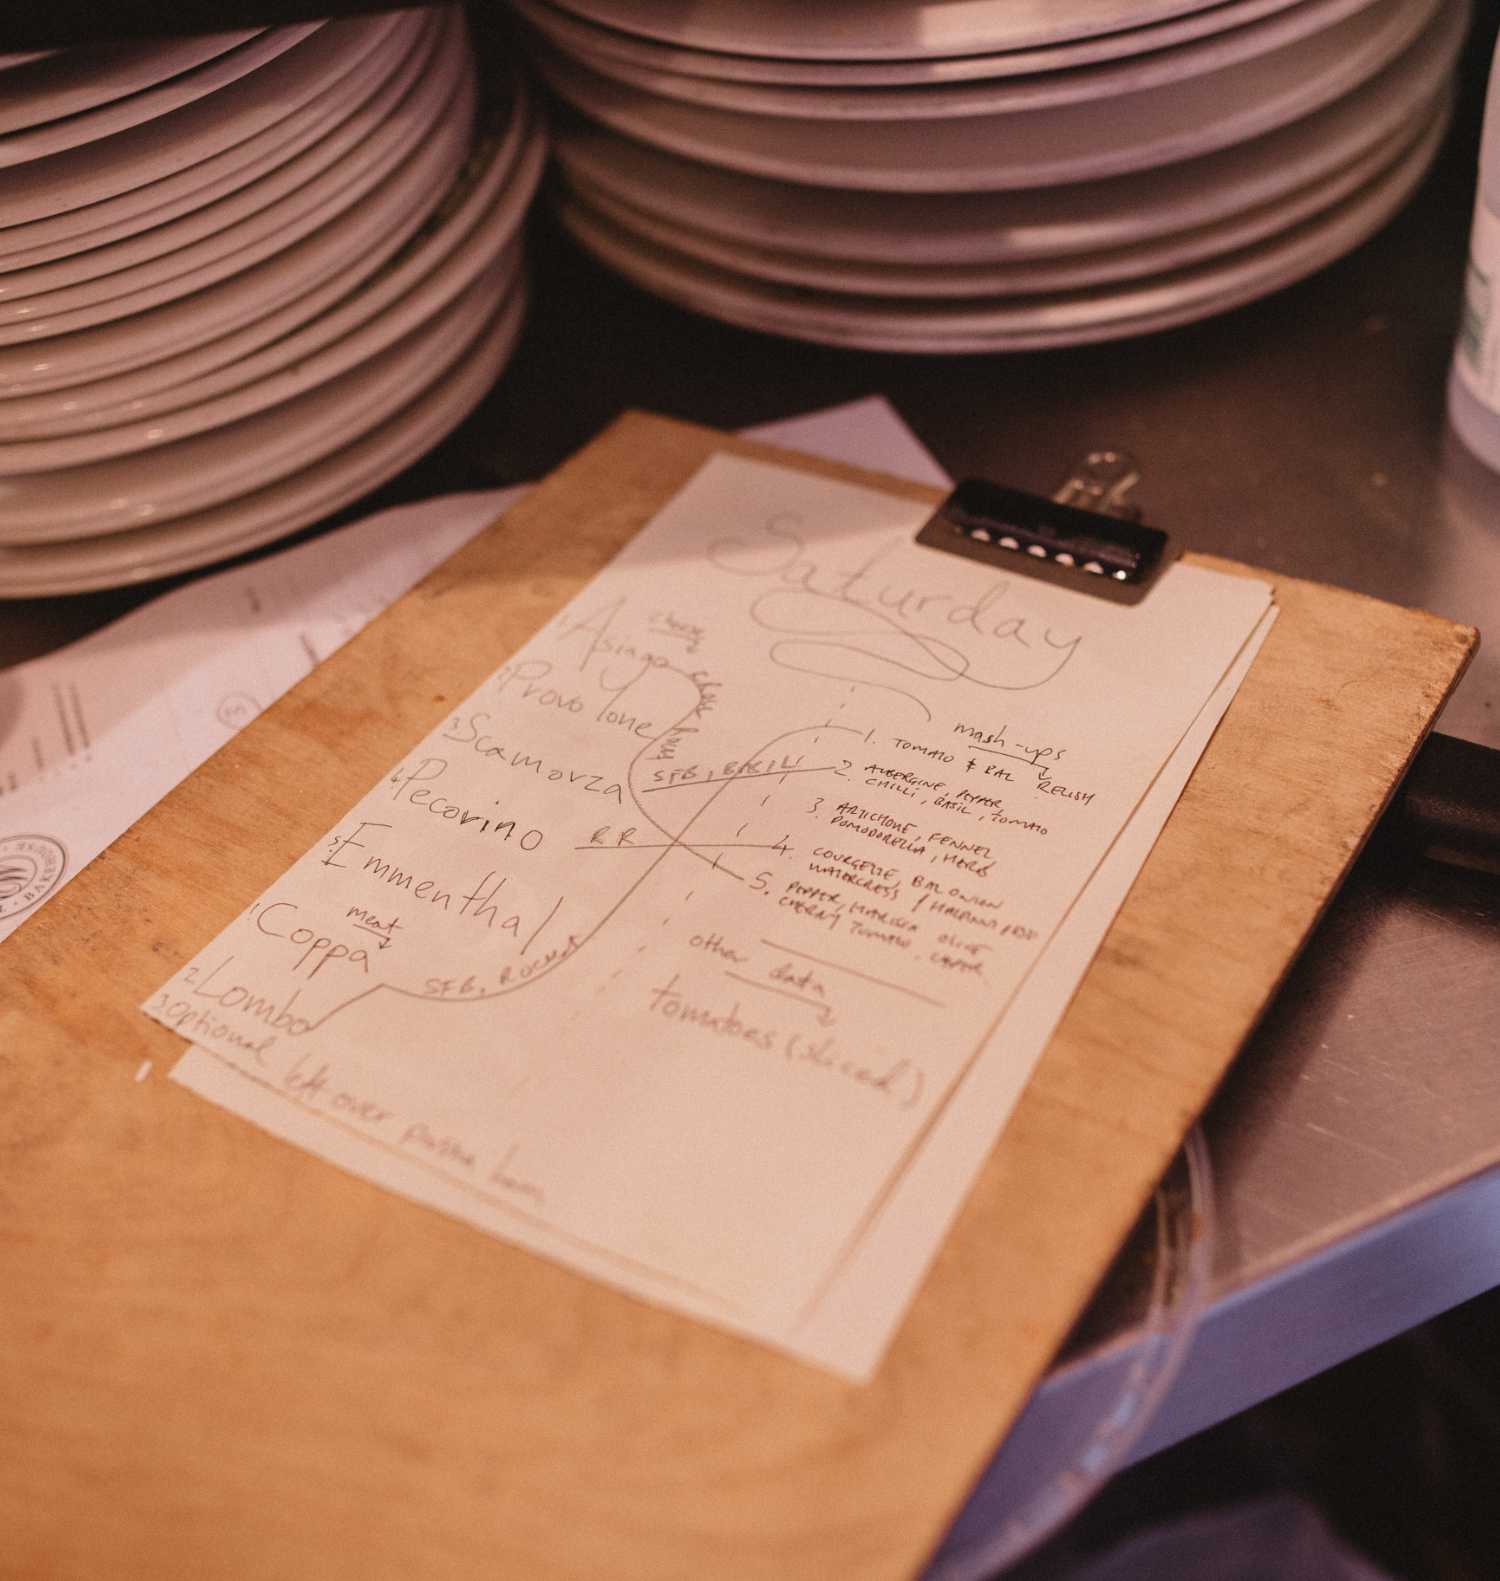 Saturday
cheese
1. Asiago
close
2. Provolone
3. Scamorza
4. Pecorino
5. Emmenthal
meat
1. Coppa
2. Lombo
3. Optional left over parma ham
SFB,
RR
SFB, ROCKET
mash-ups
1. TOMATO & BAL RELISH
2. AUBERGINE, PEPPER,
CHILLI, BASIL, TOMATO
3. ARTICHOKE, FENNEL
POMODORELLA, HERB
4. COURGETTE, BAL ONION
WATERCRESS
5. PEPPER, OLIVE
CHERRY TOMATO, CAPER
other data
tomatoes (sliced)